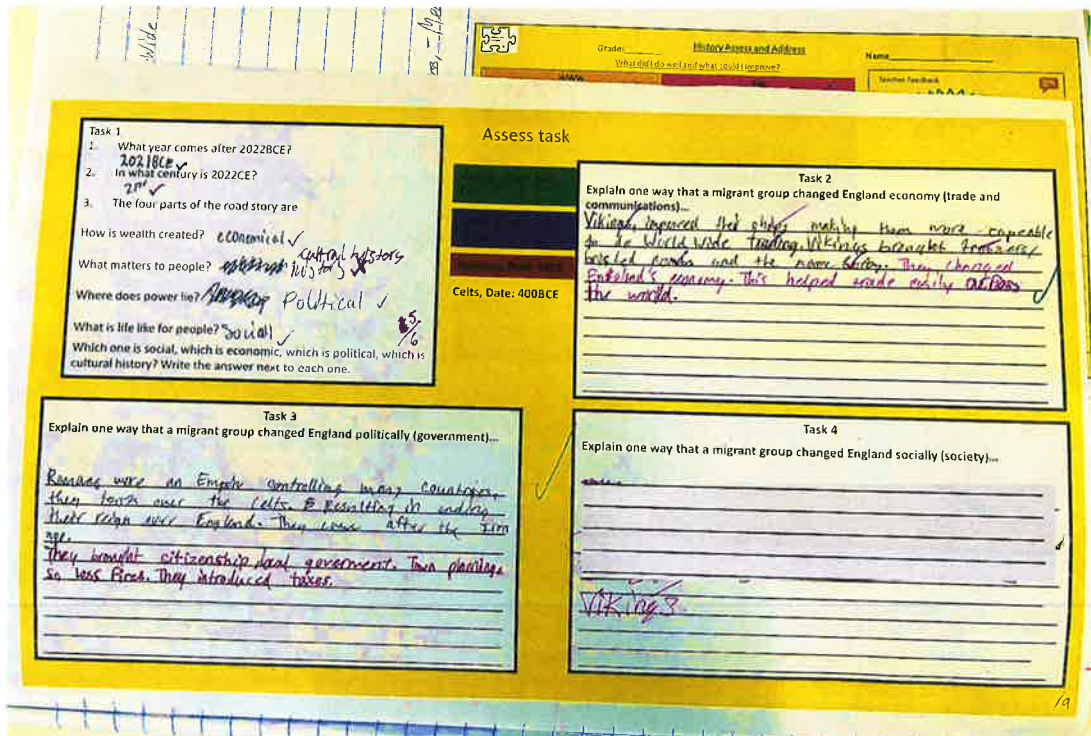 Wide
Grade:
History Assess and Address
Name
What did I do well and what could I improve?
WWW
Teacher Feedback
Assess task
Task 1
1. What year comes after 2022BCE?
2021BCE
2. In what century is 2022CE?
2nd
3. The four parts of the road story are
How is wealth created? economical
cultral history
What matters to people? history
Where does power lie? Political
5/6
What is life like for people? Social
Which one is social, which is economic, which is political, which is
cultural history? Write the answer next to each one.
Celts, Date: 400BCE
Task 2
Explain one way that a migrant group changed England economy (trade and
communications)...
Vikings, improved their ships making them more capeable
to do World Wide trading. Vikings breaught
and the name. They changed
England's economy. This helped trade easily across
the world.
Task 3
Explain one way that a migrant group changed England politically (government)...
Romans were an Empire controlling many countries,
they took over the Celts. Resulting in ending
their reign over England. They came after the Iron
age.
They brought citizenship, local goverment. Town planning,
so less fires. They introduced taxes.
Task 4
Explain one way that a migrant group changed England socially (society)...
Vikings
/9